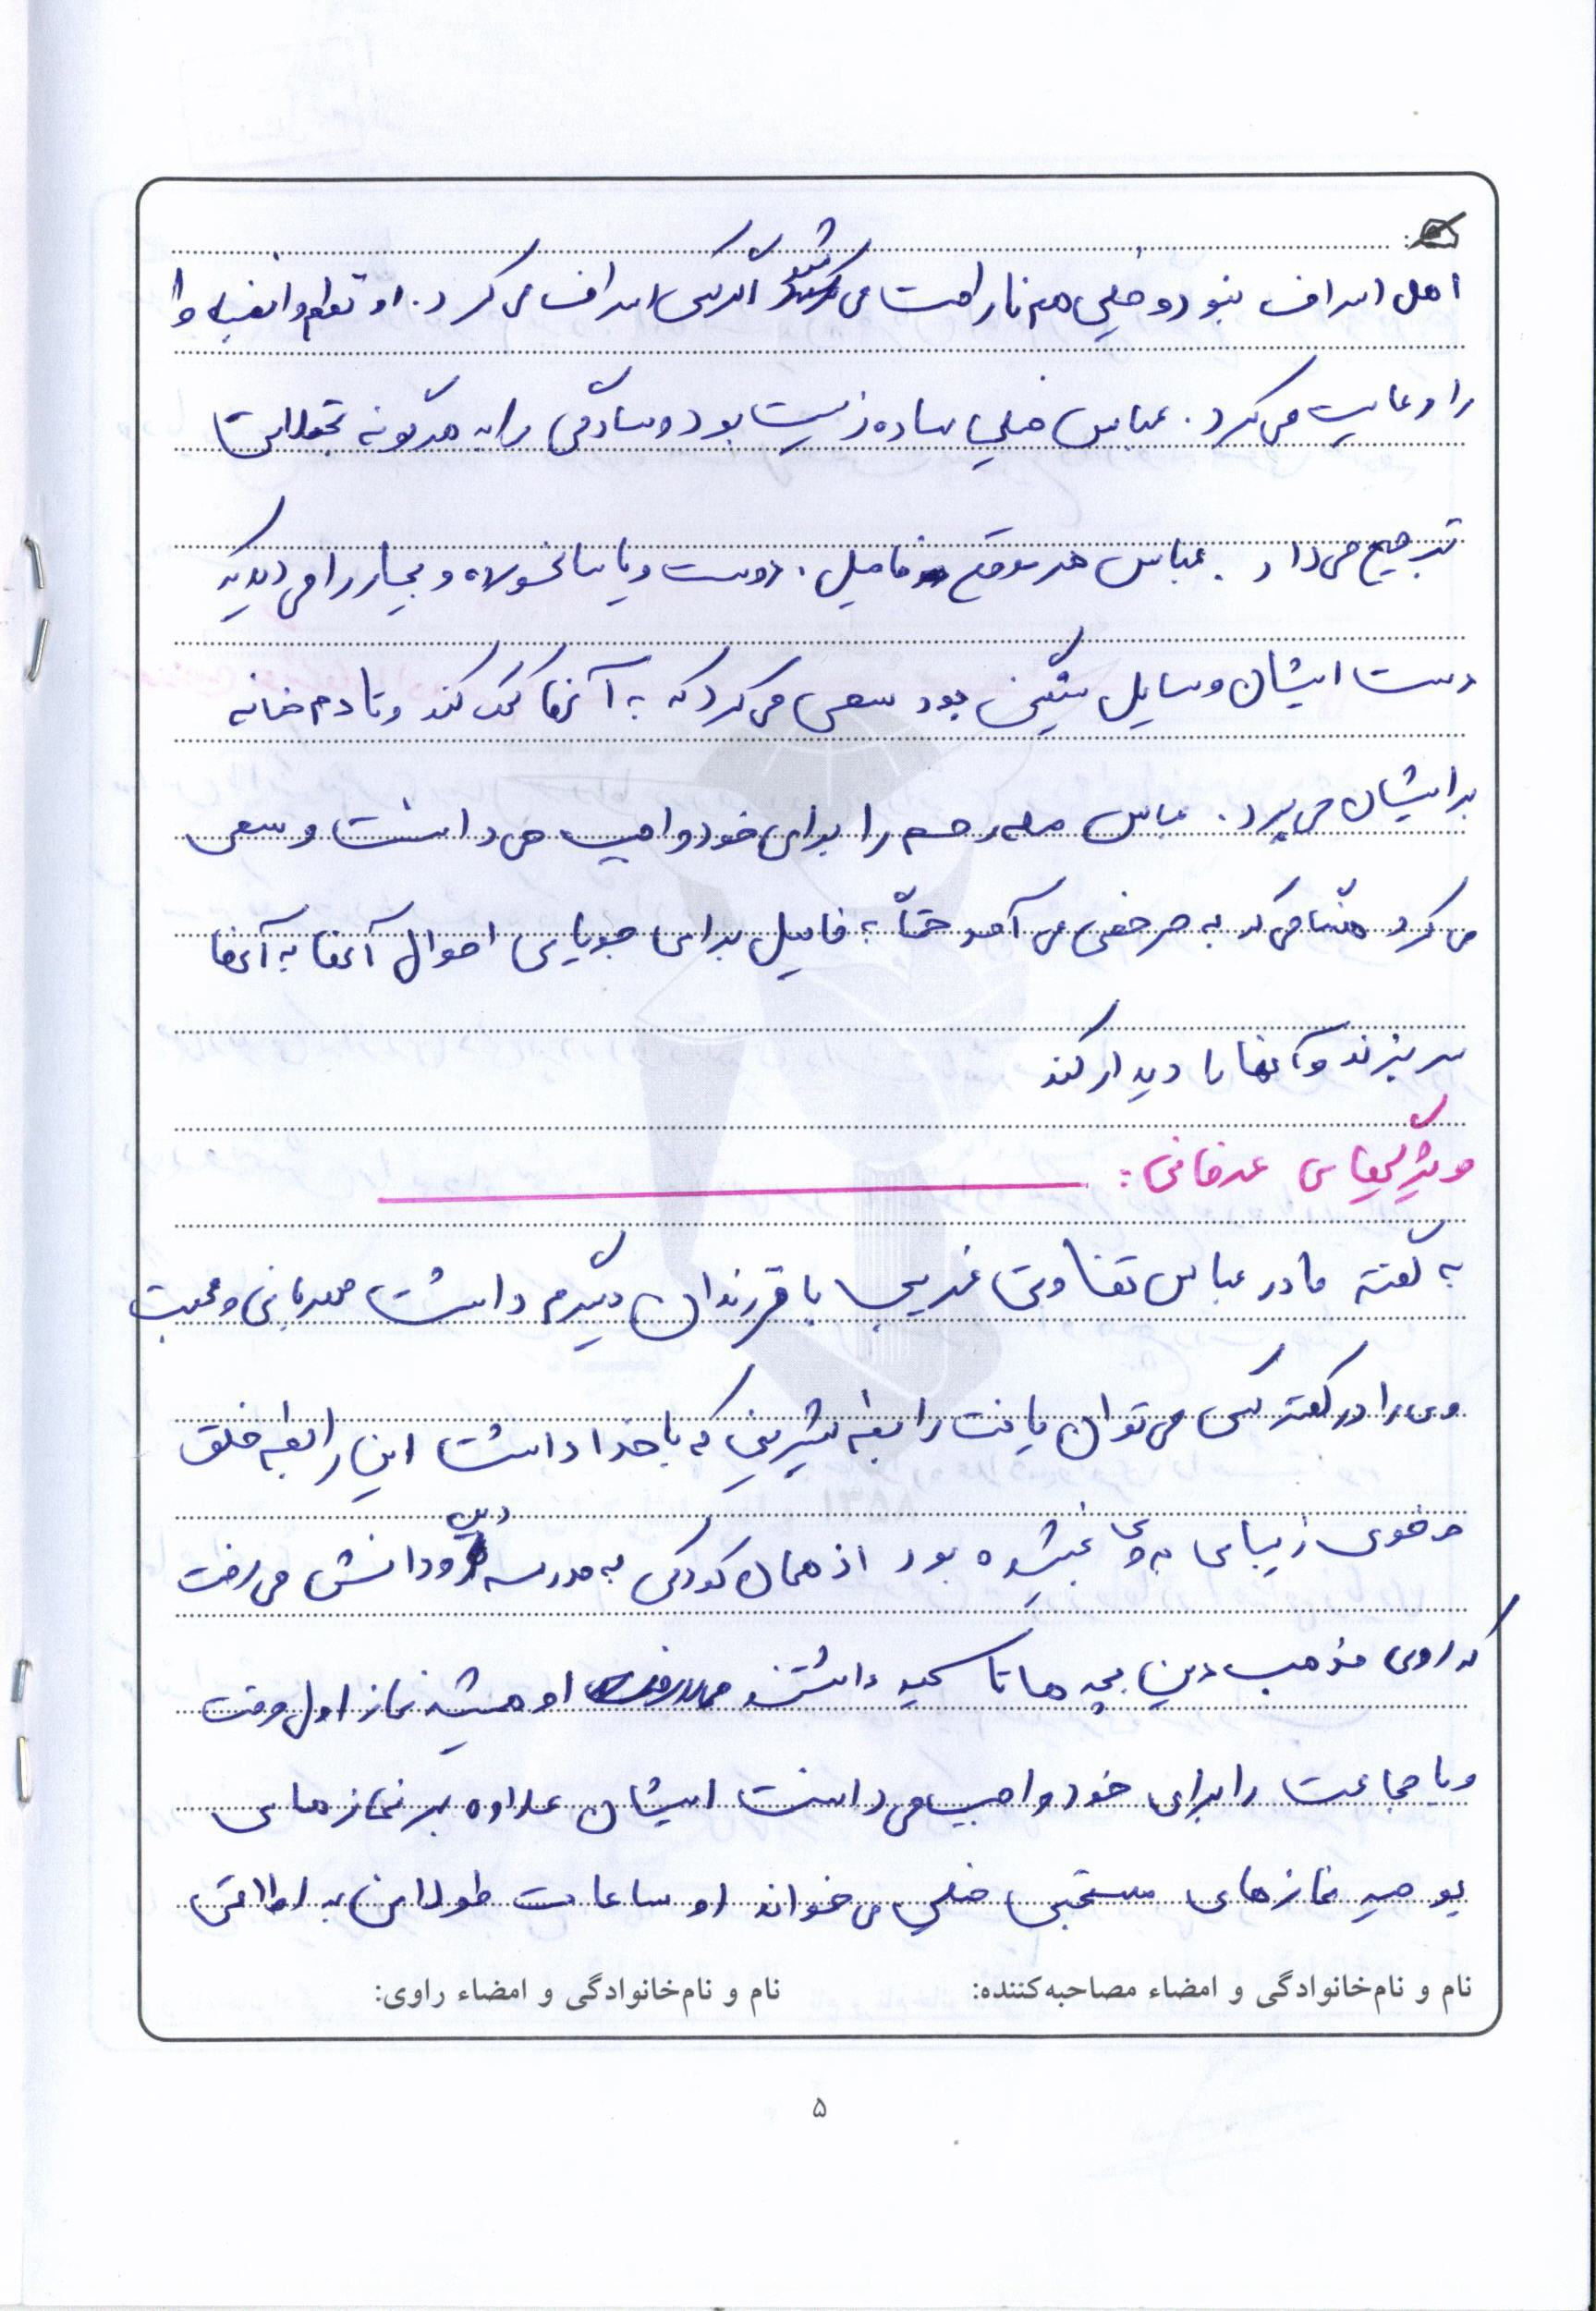 اهل اسراف نبود و خیلی هم ناراحت می شود اگر کسی اسراف می کرد. او نظم و انضباط
را رعایت می کرد. عباس خیلی ساده زیست بود و سادگی را به هرگونه تجملاتی
ترجیح می داد. عباس هر موقع فامیل، دوست و یا سالخورده و بیمار را می دید که
دست ایشان وسایل سنگینی بود سعی می کرد که به آنها کمک کند و تا دم خانه
برایشان می برد. عباس صله رحم را برای خود واجب می دانست و سعی
می کرد هنگامی که به مرخصی می آمد حتماً به فامیل برای جویای احوال آنها به آنها
سر بزند و آنها را دیدار کند
ویژگیهای عرفانی:
به گفته مادر عباس تفاوتی غریب با فرزندان دیگرم داشت مهربانی و محبت
وی را در کمتر کسی می توان یافت رابطه شیرینی که با خدا داشت این رابطه خلق
و خوی زیبای به وی بخشیده بود از همان کودکی به مدرسه دین و دانش می رفت
که روی مذهب دین بچه ها تاکید داشتند او همیشه نماز اول وقت
و با جماعت را برای خود واجب می دانست ایشان علاوه بر نمازهای
یومیه نمازهای مستحبی خیلی می خواند او ساعات طولانی به اطاقش
نام و نام‌خانوادگی و امضاء مصاحبه‌کننده: نام و نام‌خانوادگی و امضاء راوی:
۵